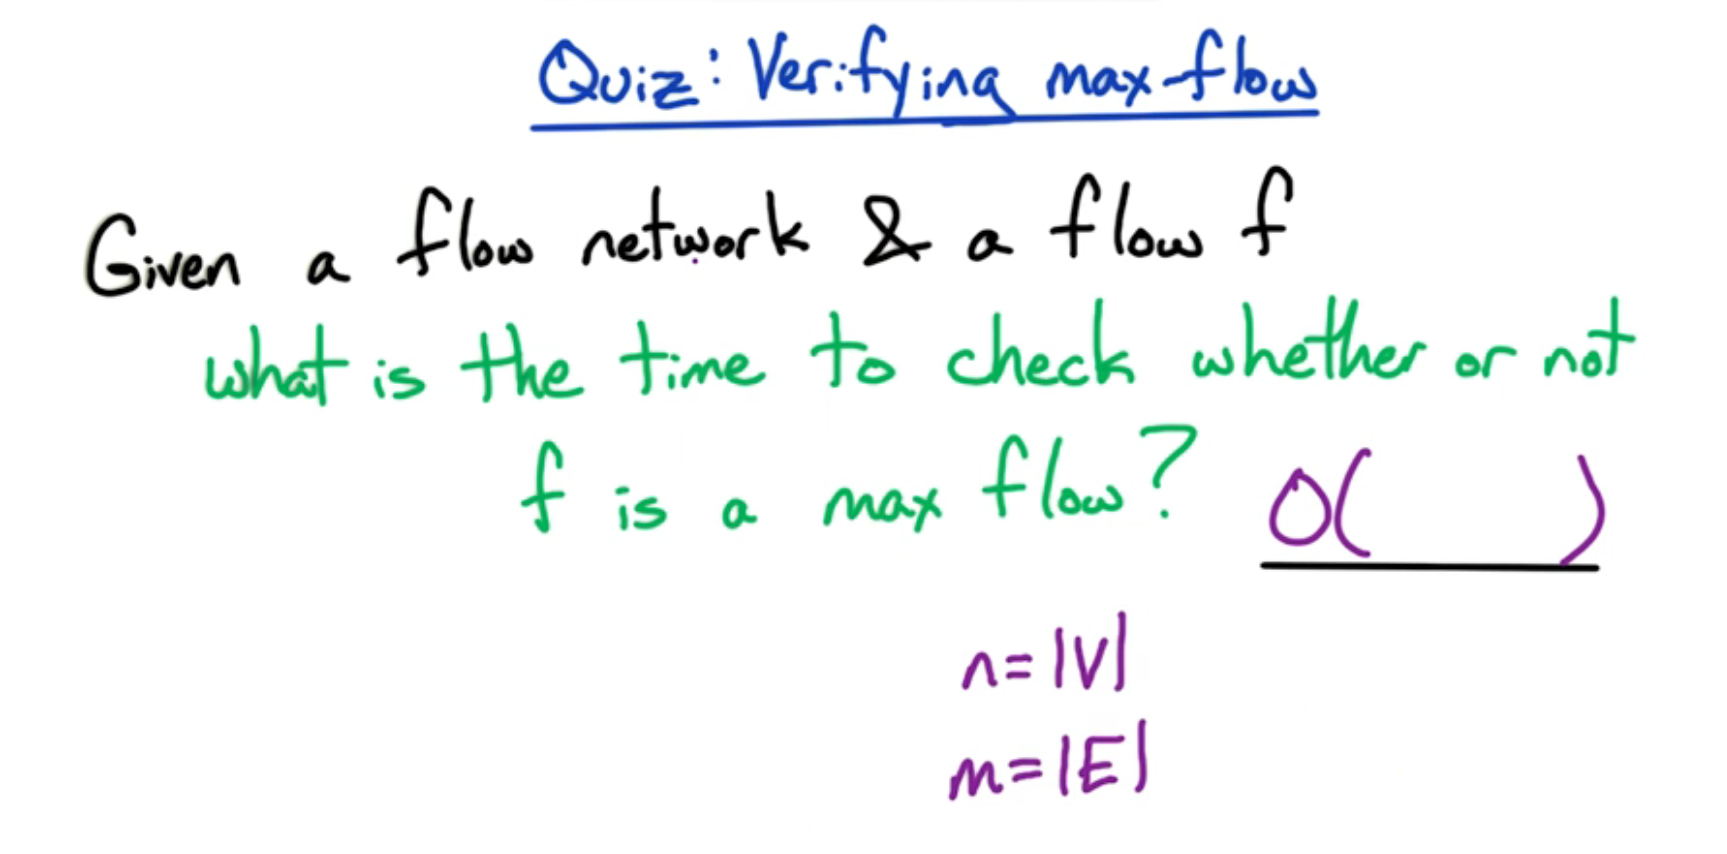 Quiz: Verifying max-flow
Given a flow network & a flow f
what is the time to check whether or not
f is a max flow? O( )
n=|V|
m=|E|